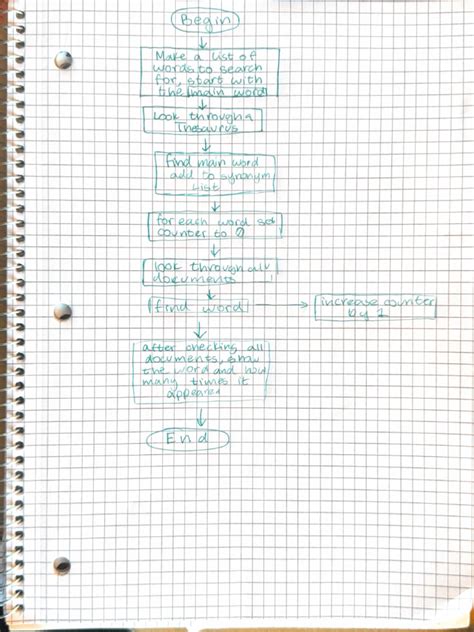 Begin
Make a list of
words to search
for, start with
the main word
Look through a
Thesaurus
find main word
add to synonym
List
for each word set
counter to 0
look through all
documents
find word
increase counter
by 1
after checking all
documents, show
the word and how
many times it
appeared
End